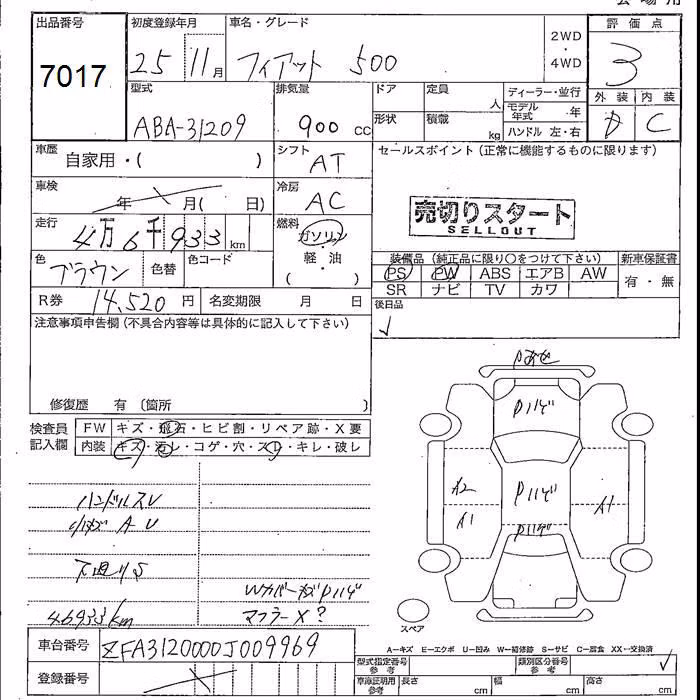 出品番号 初度登録年月 車名・グレード 2WD・4WD 評価点
7017 25 11月 フィアット 500 3
型式 排気量 ドア 定員 人 ディーラー・並行 外装 内装
ABA-31209 900 cc 形状 積載 kg モデル年式 年 D C
ハンドル 左・右
車歴 自家用・( ) シフト AT セールスポイント(正常に機能するものに限ります)
車検 年 月( 日) 冷房 AC
売切りスタート
SELLOUT
走行 4万6千933km 燃料 ガソリン
軽・油
( )
色 ブラウン 色替 色コード
装備品 (純正品に限り○をつけて下さい) 新車保証書
PS PW ABS エアB AW 有・無
SR ナビ TV カワ
R券 14,520円 名変期限 月 日 後日品
注意事項申告欄(不具合内容等は具体的に記入して下さい)
修復歴 有 〔箇所 〕
検査員記入欄 FW キズ・飛石・ヒビ割・リペア跡・X要
内装 キズ・汚レ・コゲ・穴・スレ・キレ・破レ
Pあせ
Pハゲ
A2 Pハゲ A1
A1 Pハゲ
ハンドルスレ
下廻りS
Wカバーキズ Pハゲ
46933km マフラーX?
スペア
A−キズ E−エクボ U−凹み W−補修跡 S−サビ C−腐食 XX−交換済
車台番号 ZFA3120000J009969
登録番号
型式指定番号 参考 類別区分番号 参考
車庫証明用 参考 長さ cm 幅 cm 高さ cm